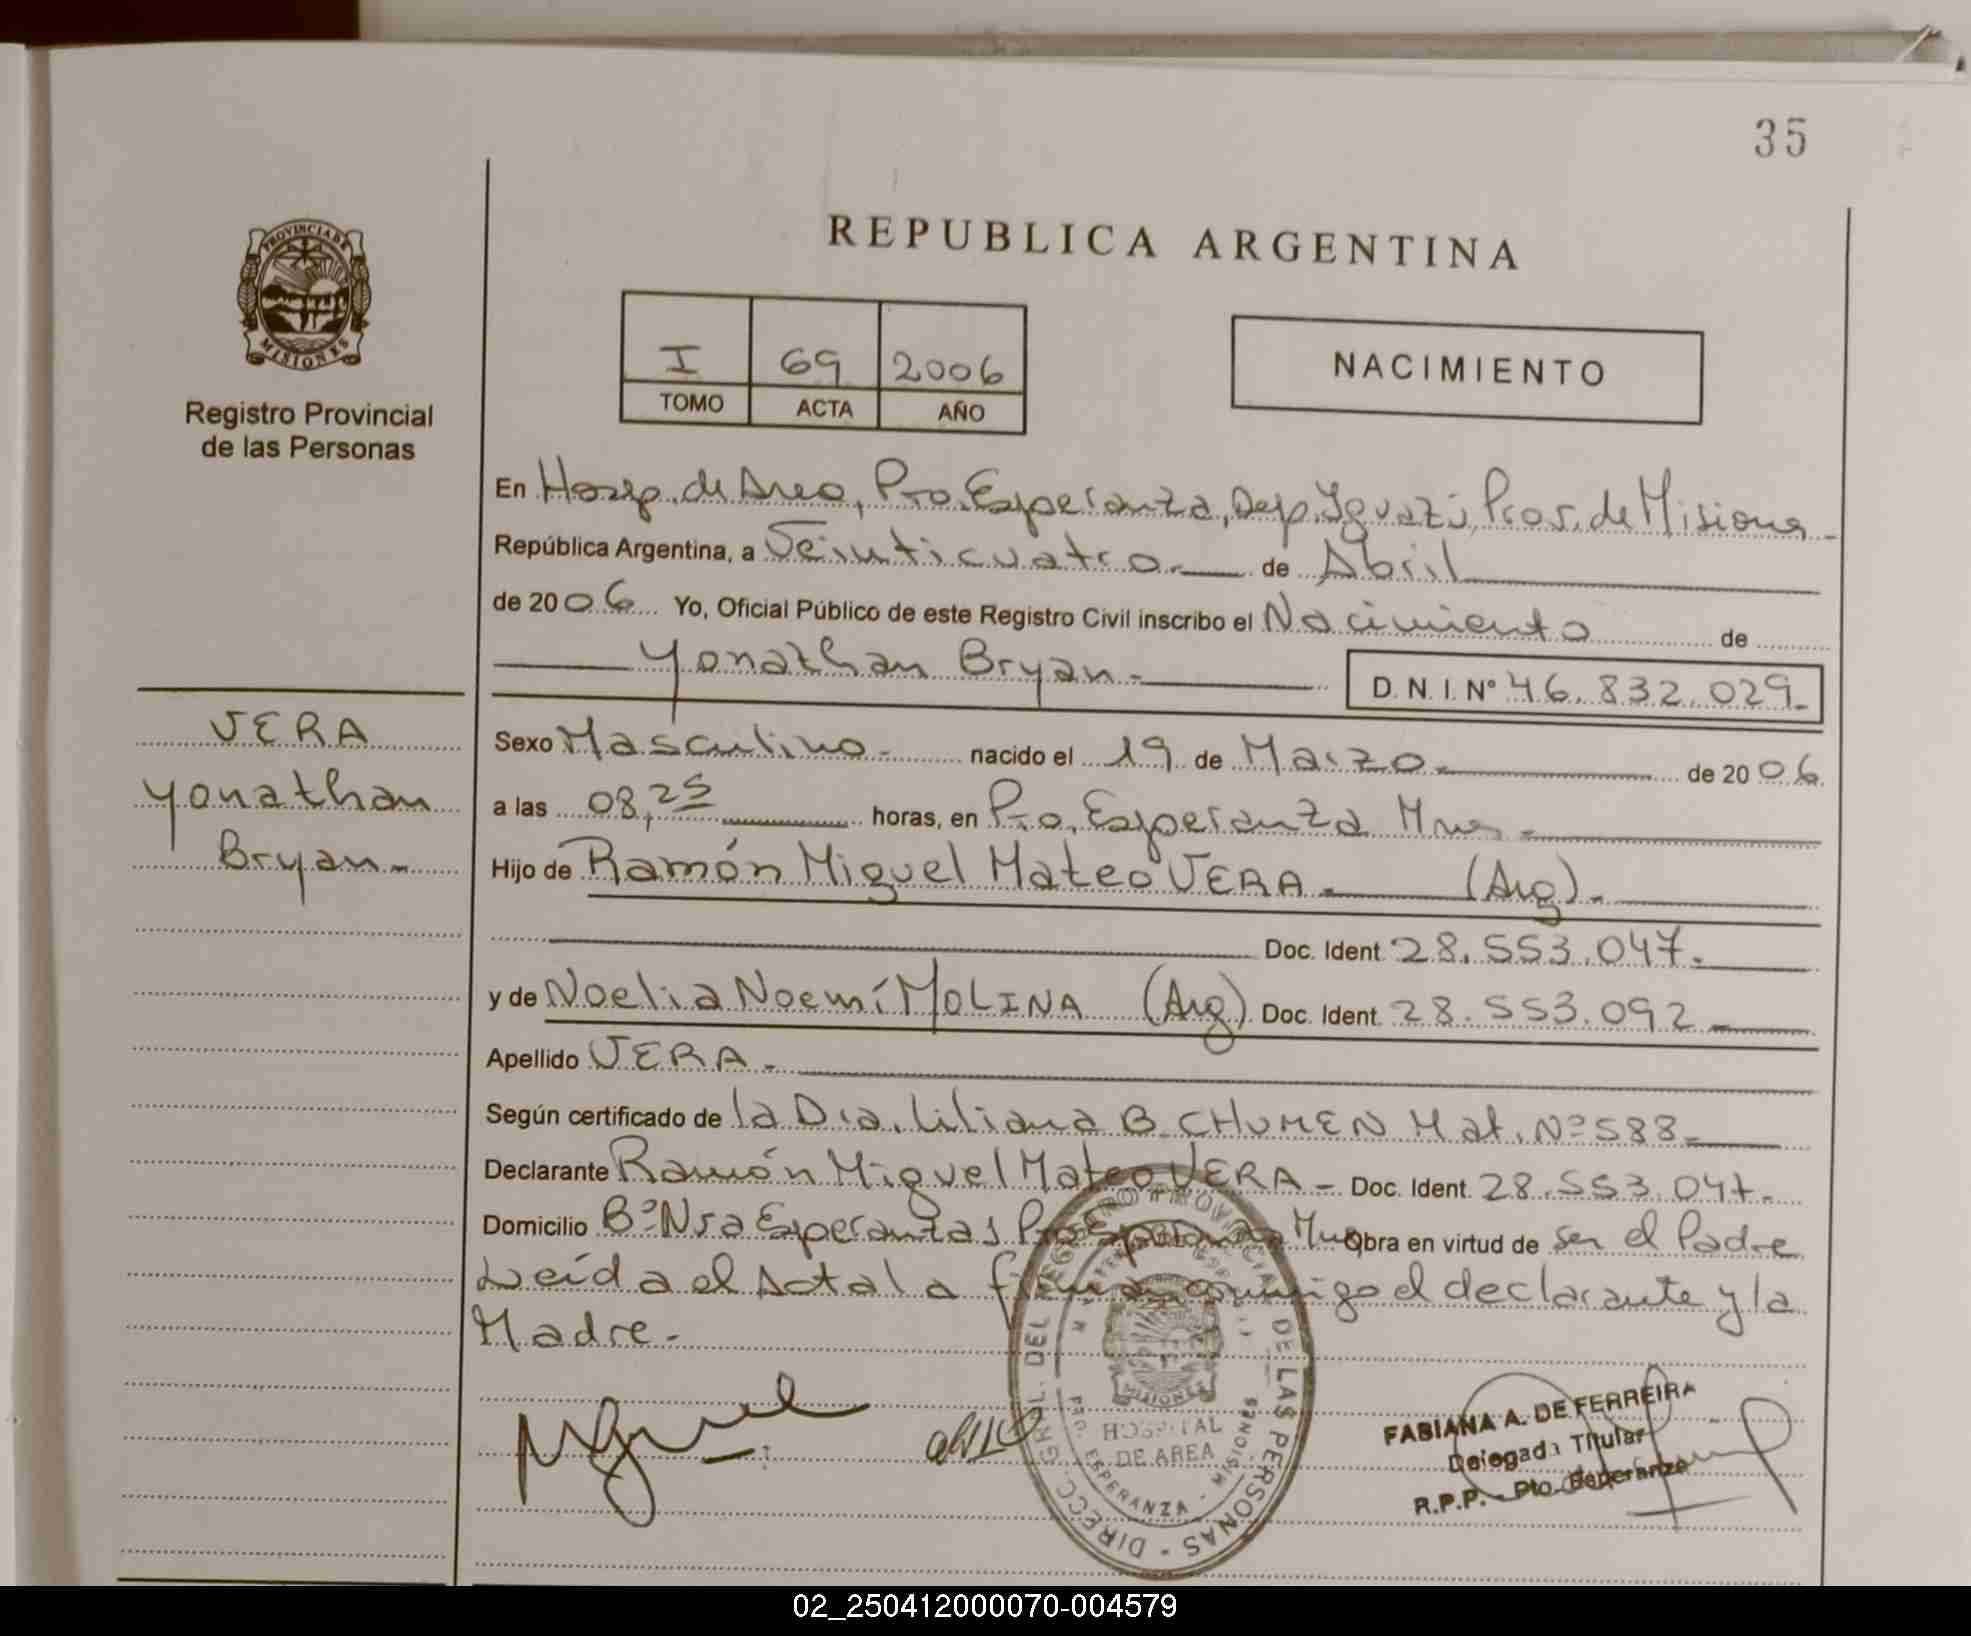 35
PROVINCIA DE
MISIONES
Registro Provincial
de las Personas
REPUBLICA ARGENTINA
I 69 2006
TOMO ACTA AÑO
NACIMIENTO
En Hosp. de Area, Pto. Esperanza, Dep. Iguazú, Prov. de Misiones
República Argentina, a Veinticuatro.- de Abril
de 2006 Yo, Oficial Público de este Registro Civil inscribo el Nacimiento de
Yonathan Bryan.- D.N.I. Nº 46.832.029.-
VERA
Yonathan
Bryan.-
Sexo Masculino.- nacido el 19 de Marzo.- de 2006
a las 08,25 horas, en Pto. Esperanza Mnes.-
Hijo de Ramón Miguel Mateo VERA.- (Arg).-
Doc. Ident. 28.553.047.-
y de Noelia Noemí MOLINA (Arg). Doc. Ident. 28.553.092.-
Apellido VERA.-
Según certificado de la Dra. Liliana B. CHUMEN Mat. Nº 588.-
Declarante Ramón Miguel Mateo VERA - Doc. Ident. 28.553.047.-
Domicilio Bº Nra Esperanza, Pto Esperanza Obra en virtud de ser el Padre
Leída el Acta la firman conmigo el declarante y la
Madre.-
DIRECC. GRAL. DEL REGISTRO PROVINCIAL DE LAS PERSONAS
MISIONES
HOSPITAL
DE AREA
PTO ESPERANZA - MISIONES
FABIANA A. DE FERREIRA
Delegada Titular
R.P.P. - Pto. Esperanza
02_250412000070-004579